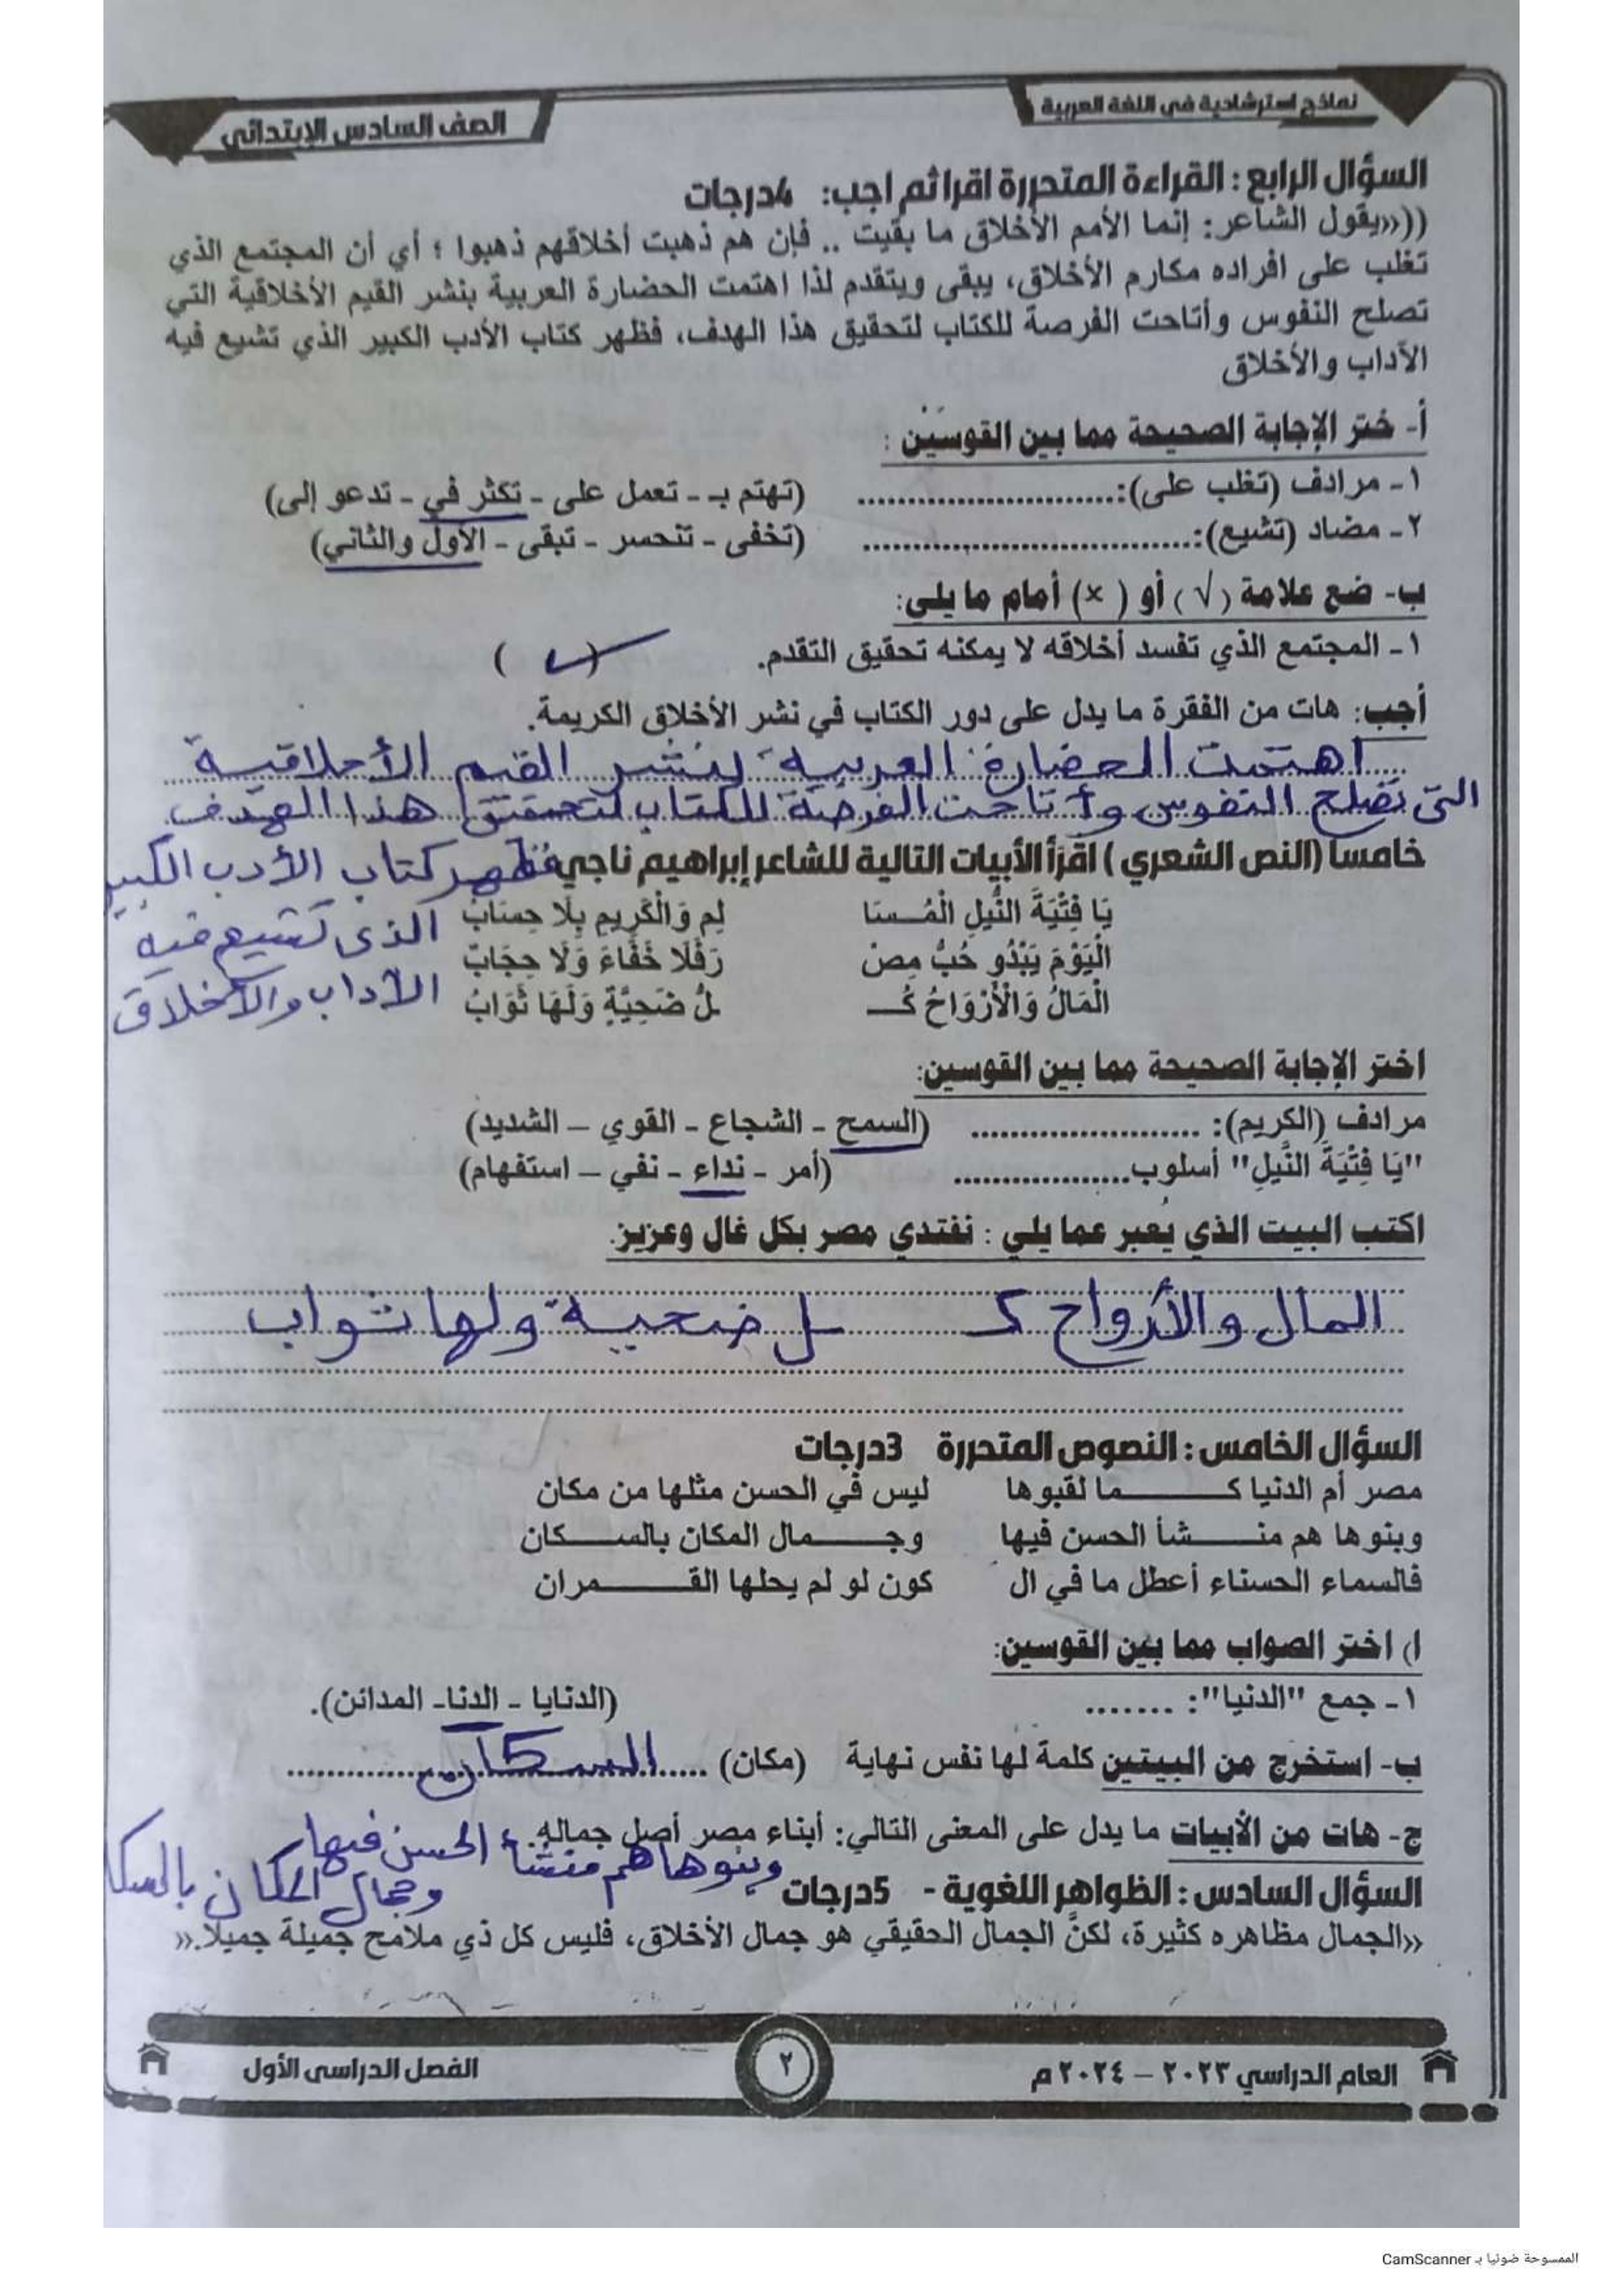 نماذج استرشادية في اللغة العربية
الصف السادس الابتدائي
السؤال الرابع : القراءة المتحررة اقرا ثم اجب: 4درجات
((«يقول الشاعر: إنما الأمم الأخلاق ما بقيت .. فإن هم ذهبت أخلاقهم ذهبوا ؛ أي أن المجتمع الذي
تغلب على افراده مكارم الأخلاق، يبقى ويتقدم لذا اهتمت الحضارة العربية بنشر القيم الأخلاقية التي
تصلح النفوس وأتاحت الفرصة للكتاب لتحقيق هذا الهدف، فظهر كتاب الأدب الكبير الذي تشيع فيه
الآداب والأخلاق
أ- ختر الإجابة الصحيحة مما بين القوسين :
١- مرادف (تغلب على):.......................... (تهتم بـ - تعمل على - تكثر في - تدعو إلى)
٢- مضاد (تشيع):.................................. (تخفى - تنحسر - تبقى - الأول والثاني)
ب- ضع علامة (√) أو (×) أمام ما يلي:
١- المجتمع الذي تفسد أخلاقه لا يمكنه تحقيق التقدم. ( ✓ )
أجب: هات من الفقرة ما يدل على دور الكتاب في نشر الأخلاق الكريمة.
اهتمت الحضارة العربية بنشر القيم الأخلاقية
التي تصلح النفوس وأتاحت الفرصة للكتاب لتحقيق هذا الهدف
خامسا (النص الشعري) اقرأ الأبيات التالية للشاعر إبراهيم ناجي فظهر كتاب الأدب الكبير
يَا فِتْيَةَ النِّيلِ الْمُـسَا لِمِ وَالْكَرِيمِ بِلَا حِسَابْ الذي تشيع فيه
الْيَوْمَ يَبْدُو حُبُّ مِصْ رَفَلَا خَفَاءَ وَلَا حِجَابْ
الْمَالُ وَالْأَرْوَاحُ كُـ لُّ ضَحِيَّةٍ وَلَهَا ثَوَابْ الآداب والأخلاق
اختر الإجابة الصحيحة مما بين القوسين:
مرادف (الكريم): ........................ (السمح - الشجاع - القوي – الشديد)
"يَا فِتْيَةَ النِّيلِ" أسلوب.................. (أمر - نداء - نفي – استفهام)
اكتب البيت الذي يُعبر عما يلي : نفتدي مصر بكل غال وعزيز.
المال والأرواح كـ ـل ضحية ولها ثواب
السؤال الخامس : النصوص المتحررة 3درجات
مصر أم الدنيا كـــــما لقبوها ليس في الحسن مثلها من مكان
وبنوها هم منـــشأ الحسن فيها وجـــمال المكان بالســـكان
فالسماء الحسناء أعطل ما في ال كون لو لم يحلها القـــمران
ا) اختر الصواب مما بين القوسين:
١- جمع "الدنيا": ........ (الدنايا - الدنا- المدائن).
ب- استخرج من البيتين كلمة لها نفس نهاية (مكان) ...... السكان ............
ج- هات من الأبيات ما يدل على المعنى التالي: أبناء مصر أصل جماله.
وبنوها هم منشأ الحسن فيها
وجمال المكان بالسكا
السؤال السادس : الظواهر اللغوية - 5درجات
«الجمال مظاهره كثيرة، لكنَّ الجمال الحقيقي هو جمال الأخلاق، فليس كل ذي ملامح جميلة جميلا.»
العام الدراسي ٢٠٢٣ – ٢٠٢٤ م
٢
الفصل الدراسي الأول
الممسوحة ضوئيا بـ CamScanner